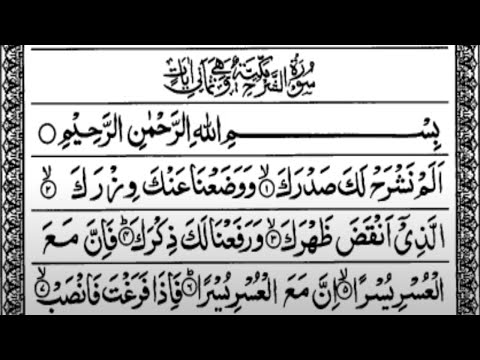 سُوْرَةُ اَلَمْ نَشْرَحْ مَكِّيَّةٌ وَّهِيَ ثَمَانِيْ اٰيَاتٍ
بِسْمِ اللّٰهِ الرَّحْمٰنِ الرَّحِيْمِ ○
اَلَمْ نَشْرَحْ لَكَ صَدْرَكَ ۙ﴿۱﴾ وَوَضَعْنَا عَنْكَ وِزْرَكَ ۙ﴿۲﴾
الَّذِيْۤ اَنْقَضَ ظَهْرَكَ ۙ﴿۳﴾ وَرَفَعْنَا لَكَ ذِكْرَكَ ؕ﴿۴﴾ فَاِنَّ مَعَ
الْعُسْرِ يُسْرًا ۙ﴿۵﴾ اِنَّ مَعَ الْعُسْرِ يُسْرًا ؕ﴿۶﴾ فَاِذَا فَرَغْتَ فَانْصَبْ ۙ﴿۷﴾